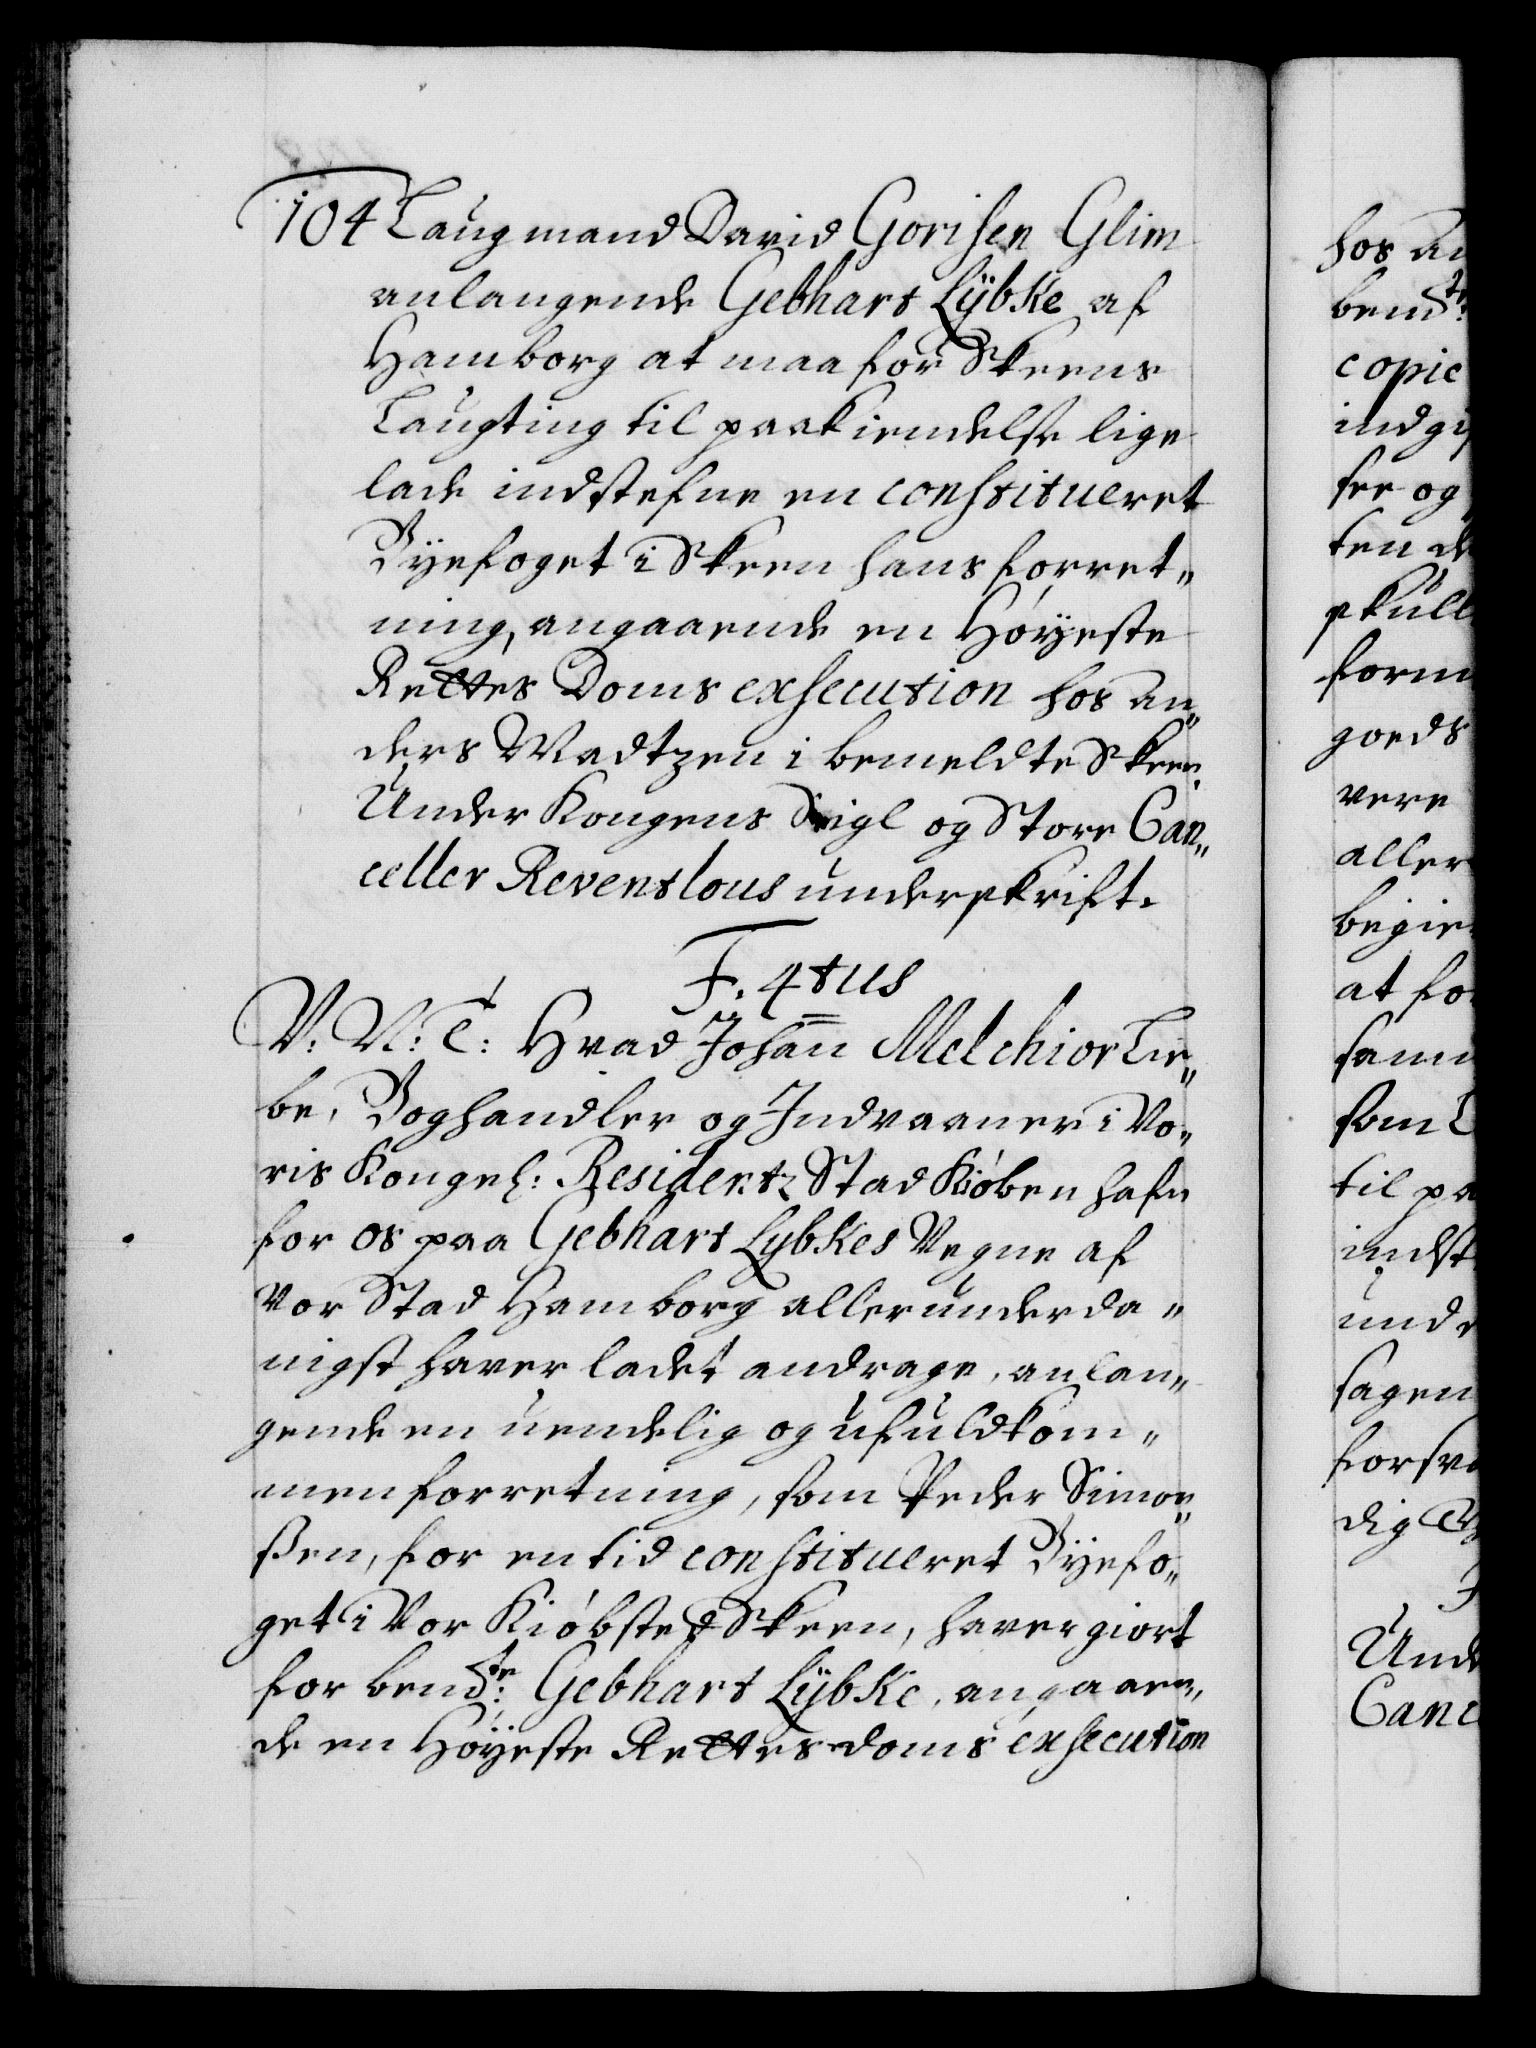 104 Laugmand David Gorisen Glim
anlangende Gebhart Lÿbke af
Hamborg at maa for Skeens
Laugting til paakiendelse lige
lade indstefne en constitueret
Byefoget i Skeen hans forret„
ning, angaaende en Høÿeste
Rettes Doms exsecution hos An„
ders Madtzen i bemeldte Skeen.
Under Kongens Seigl og Store Can„
celler Reventlous underskrift.
F. 4tus
V: N: T: Hvad Johan Melchior Lie„
be, Boghandler og Indvaaner i Vo„
ris Kongel: Residentz Stad Kiøbenhafn
for os paa Gebhart Lybkes Vegne af
Vor Stad Hamborg allerunderda„
nigst haver ladet andrage, anlan„
gende en uendelig og ufuldkom„
men forretning, som Peder Simon„
ßen, for en tid constitueret Byefo„
get i Vor Kiøbsted Skeen, haver giort
for bemdte: Gebhart Lÿbke, angaaen„
de en Høÿeste Rettes doms exsecution
hos An
bemdte:
copie
indgif
see og
ten de
skull
form
goeds
vere
aller
begier
at fo
sam
som
til pa
indst
unde
sagen
forsva
dig
Unde
Canc